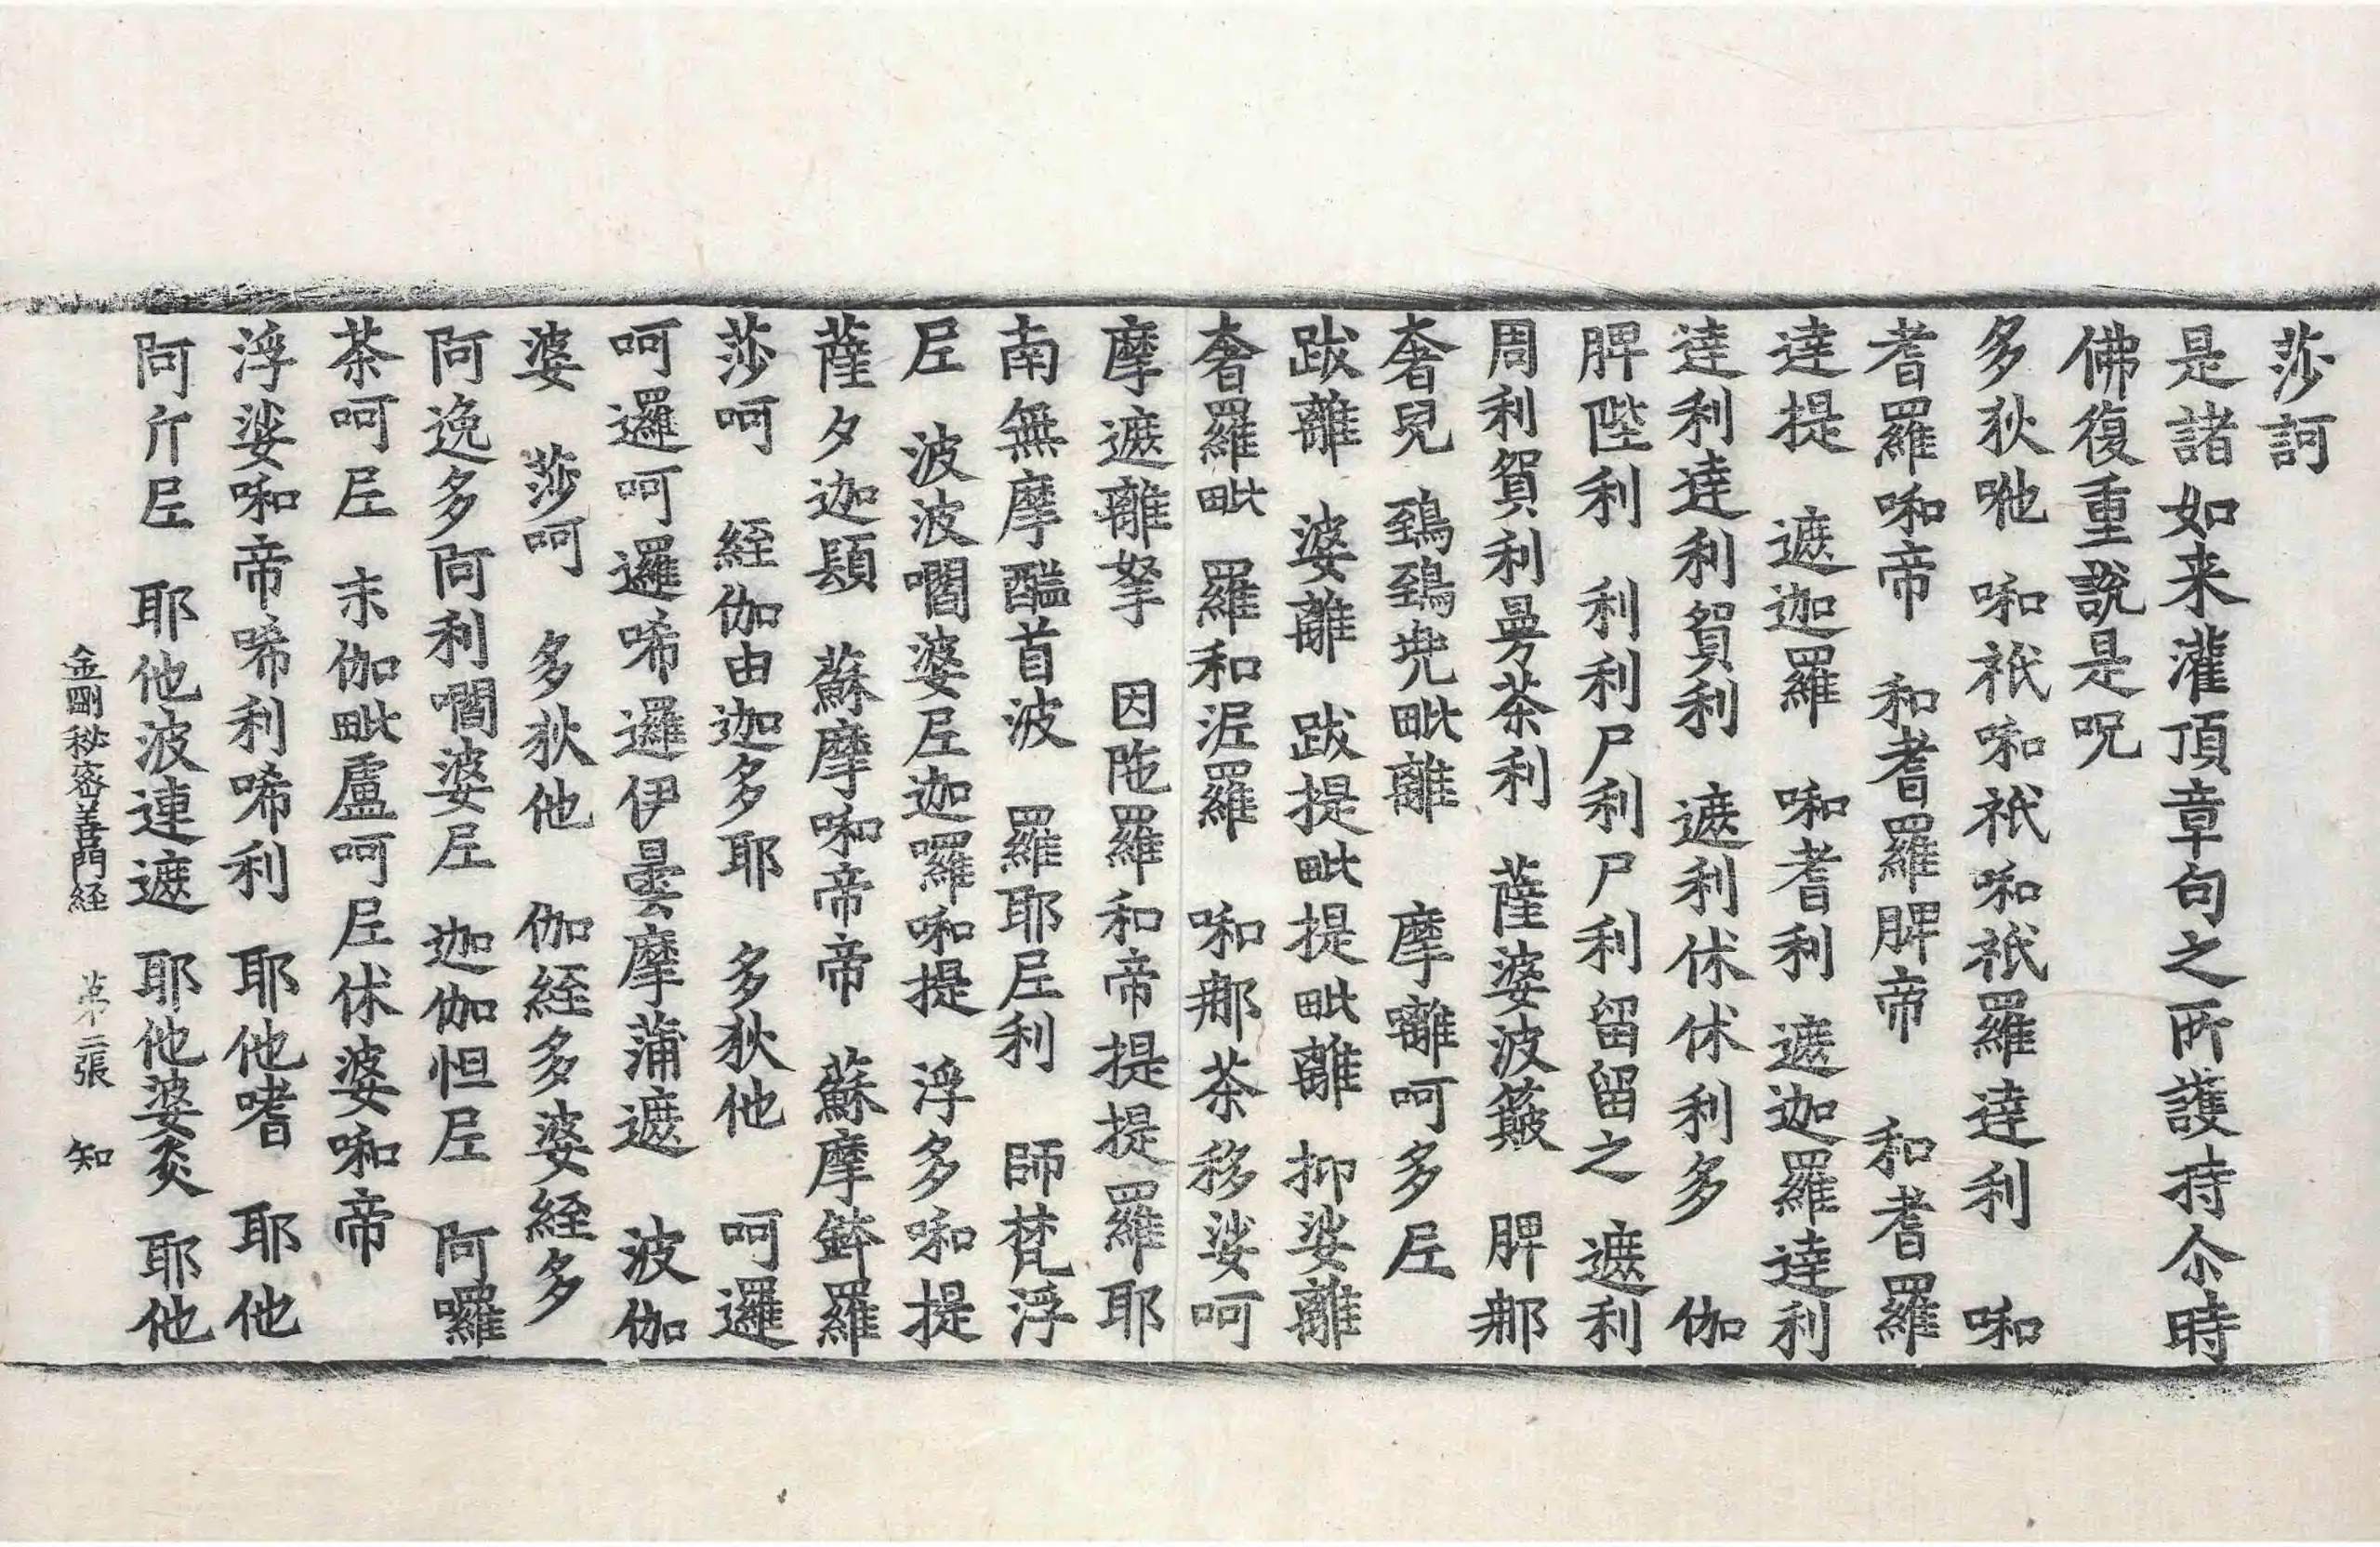 莎訶
是諸如来灌頂章句之所護持尒時
佛復重說是呪
多狄吔 啝祇啝祇啝祇羅達利 啝
耆羅啝帝 和耆羅脾帝 和耆羅
達提 遮迦羅 啝耆利 遮迦羅達利
達利達利賀利 遮利休休利多 伽
脾陛利 利利尸利尸利留留之 遮利
周利賀利㝵茶利 薩婆波簸 脾那
奢兒 鵄鵄兠毗離 摩囄呵多𡰱
跋離 婆離 跋提毗提毗離 抑娑離
奢羅毗 羅和泥羅 啝那茶移娑呵
摩遮離拏 因陁羅和帝提提羅耶
南無摩醯首波 羅耶𡰱利 師梵浮
𡰱 波波嚪婆𡰱迦囉啝提 浮多啝提
薩夕迦䫂 蘇摩啝帝帝 蘇摩鉢羅
莎呵 絰伽由迦多耶 多狄他 呵邏
呵邏呵邏唏邏伊曇摩蒲遮 波伽
婆 莎呵 多狄他 伽絰多婆絰多
阿逸多阿利嚪婆𡰱 迦伽怛𡰱 阿囉
茶呵𡰱 末伽毗盧呵𡰱休婆啝帝
浮娑啝帝唏利唏利 耶他嗜 耶他
阿斤𡰱 耶他波連遮 耶他婆炎 耶他
金剛秘密善門経 苐二張 知